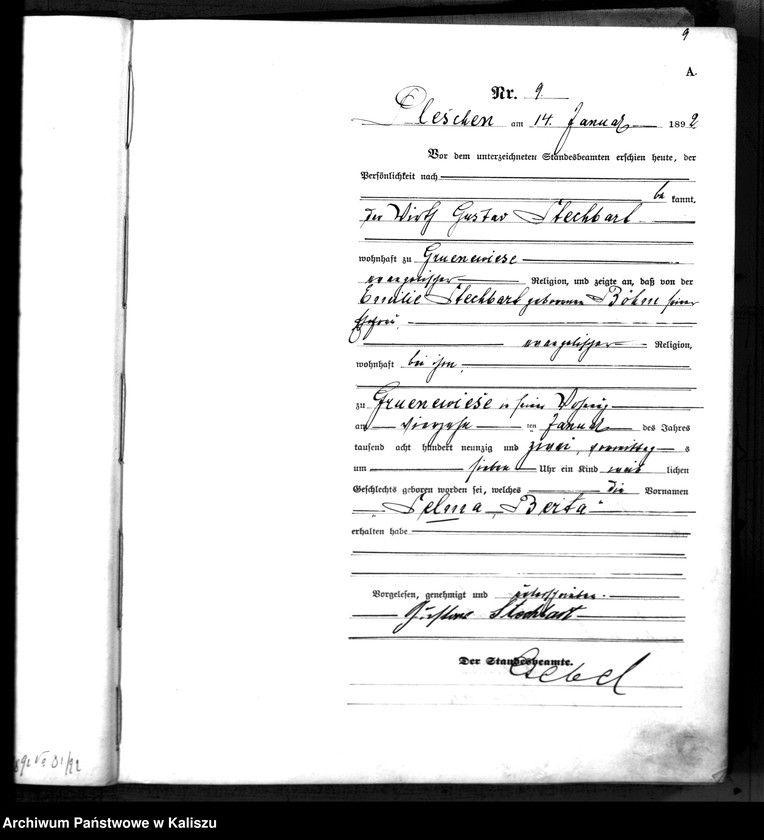 9
A.
Nr. 9
Pleschen am 14. Januar 1892
Vor dem unterzeichneten Standesbeamten erschien heute, der
Persönlichkeit nach
be kannt,
der Wirth Gustav Stechbart
wohnhaft zu Gruenewiese
evangelischer Religion, und zeigte an, daß von der
Emilie Stechbart geborenen Böhm seiner
Ehefrau
evangelischer Religion,
wohnhaft bei ihm,
zu Gruenewiese in seiner Wohnung
am vierzehn ten Januar des Jahres
tausend acht hundert neunzig und zwei, vormittag s
um sieben Uhr ein Kind weib lichen
Geschlechts geboren worden sei, welches die Vornamen
„Selma Berta“
erhalten habe
Vorgelesen, genehmigt und unterschrieben.
Gustav Stechbart
Der Standesbeamte.
Archiwum Państwowe w Kaliszu